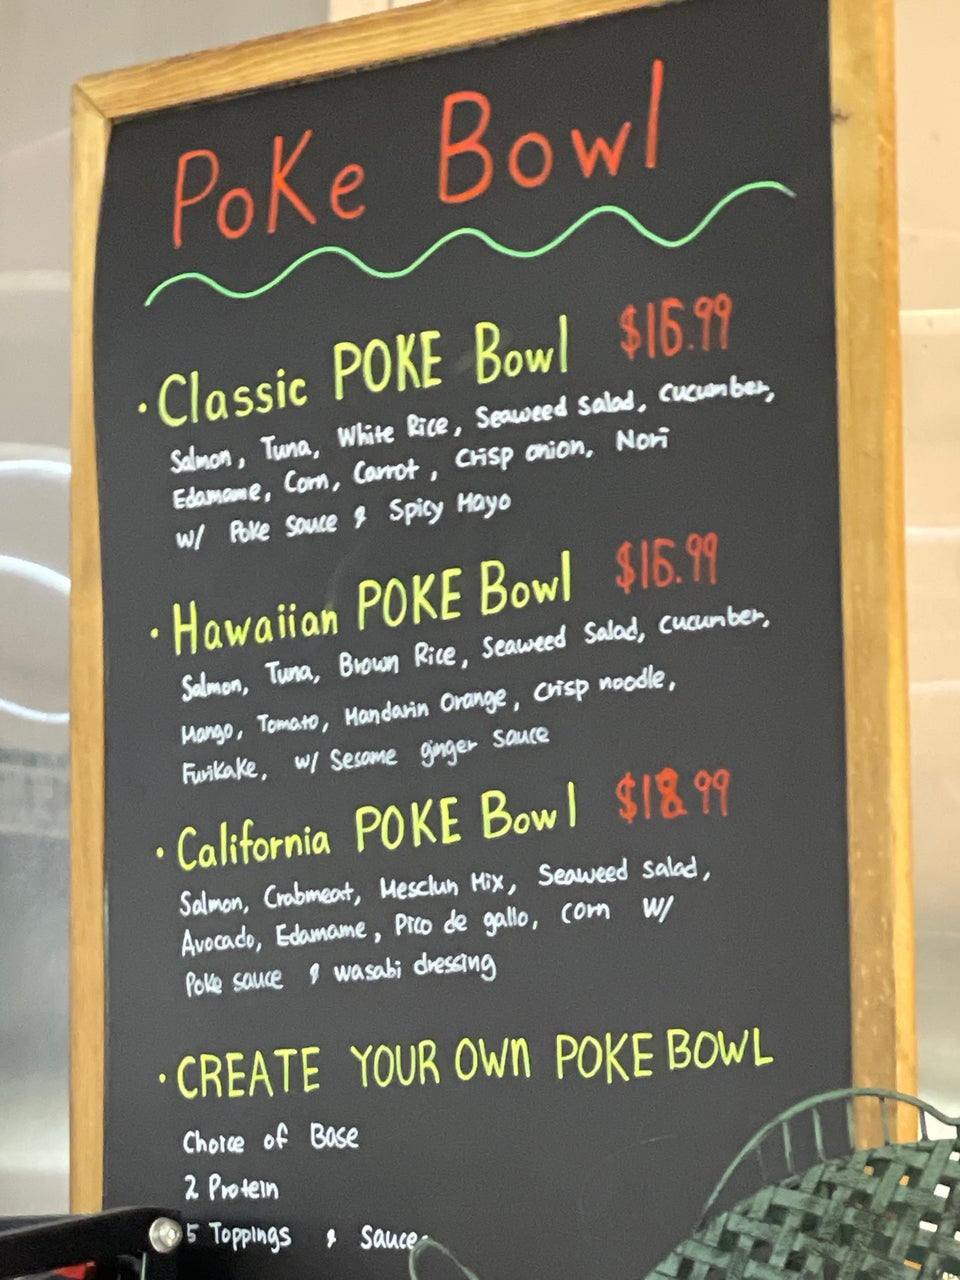 Poke Bowl
· Classic POKE Bowl $16.99
Salmon, Tuna, White Rice, Seaweed Salad, cucumber,
Edamame, Corn, Carrot, crisp onion, Nori
w/ Poke Sauce & Spicy Mayo
· Hawaiian POKE Bowl $16.99
Salmon, Tuna, Brown Rice, Seaweed Salad, cucumber,
Mango, Tomato, Mandarin Orange, crisp noodle,
Furikake, w/ Sesame ginger sauce
· California POKE Bowl $18.99
Salmon, Crabmeat, Mesclun Mix, Seaweed salad,
Avocado, Edamame, Pico de gallo, corn w/
Poke sauce & wasabi dressing
· CREATE YOUR OWN POKE BOWL
Choice of Base
2 Protein
5 Toppings & Sauce